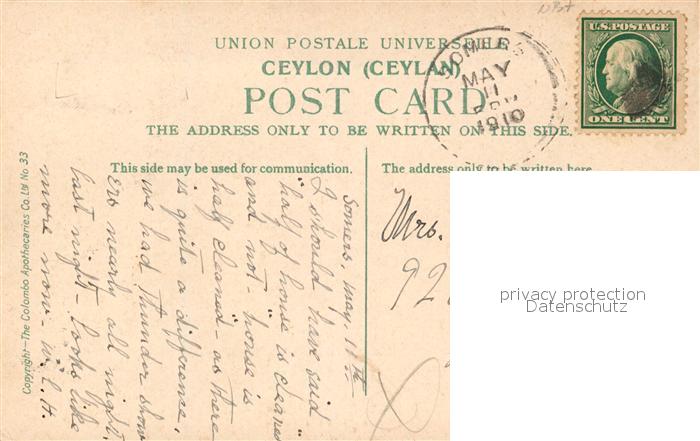 U.S. POSTAGE
ONE CENT
UNION POSTALE UNIVERSELLE
CEYLON (CEYLAN)
POST CARD
THE ADDRESS ONLY TO BE WRITTEN ON THIS SIDE.
SOMERS
MAY
11
1910
This side may be used for communication.
The address only to be written here
Somers, May, 11th
I should have said
"half of house is cleaned"
and not "house is
half cleaned - as there
is quite a difference.
we had thunder show
ers nearly all night
last night - Looks like
more now - W. L. H.
Mrs.
92
privacy protection
Datenschutz
Copyright—The Colombo Apothecaries Co. Ltd No. 33